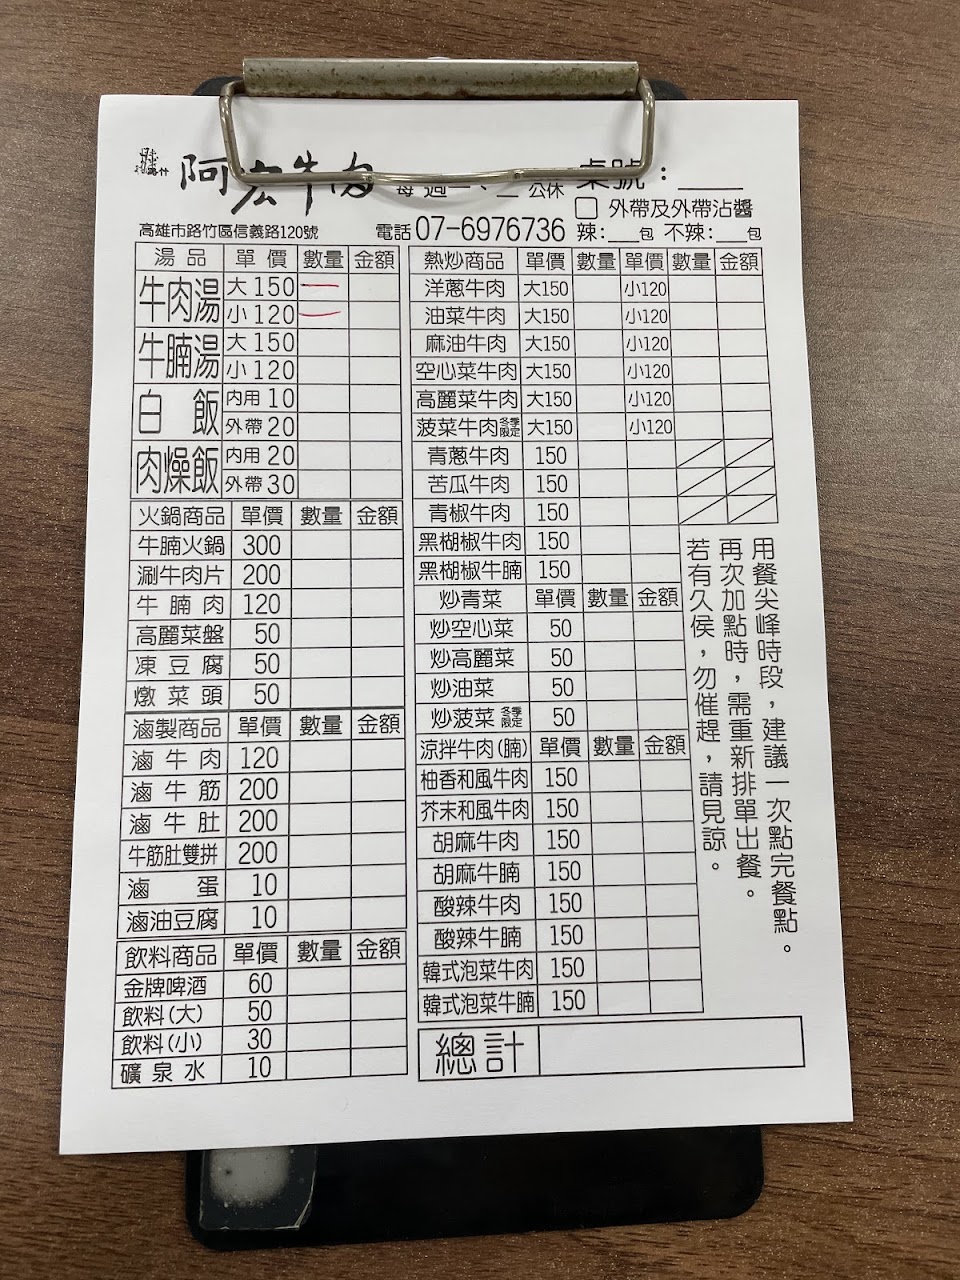 路竹
阿宏牛肉
每週一、二公休
桌號：
外帶及外帶沾醬
辣：__包 不辣：__包
高雄市路竹區信義路120號
電話07-6976736
湯品 單價 數量 金額
牛肉湯 大150 一
小120 一
牛腩湯 大150
小120
白飯 內用10
外帶20
肉燥飯 內用20
外帶30
火鍋商品 單價 數量 金額
牛腩火鍋 300
涮牛肉片 200
牛腩肉 120
高麗菜盤 50
凍豆腐 50
燉菜頭 50
滷製商品 單價 數量 金額
滷牛肉 120
滷牛筋 200
滷牛肚 200
牛筋肚雙拼 200
滷蛋 10
滷油豆腐 10
飲料商品 單價 數量 金額
金牌啤酒 60
飲料(大) 50
飲料(小) 30
礦泉水 10
熱炒商品 單價 數量 單價 數量 金額
洋蔥牛肉 大150 小120
油菜牛肉 大150 小120
麻油牛肉 大150 小120
空心菜牛肉 大150 小120
高麗菜牛肉 大150 小120
菠菜牛肉冬季限定 大150 小120
青蔥牛肉 150
苦瓜牛肉 150
青椒牛肉 150
黑楜椒牛肉 150
黑楜椒牛腩 150
炒青菜 單價 數量 金額
炒空心菜 50
炒高麗菜 50
炒油菜 50
炒菠菜冬季限定 50
涼拌牛肉(腩) 單價 數量 金額
柚香和風牛肉 150
芥末和風牛肉 150
胡麻牛肉 150
胡麻牛腩 150
酸辣牛肉 150
酸辣牛腩 150
韓式泡菜牛肉 150
韓式泡菜牛腩 150
總計
用餐尖峰時段，建議一次點完餐點。
再次加點時，需重新排單出餐。
若有久侯，勿催趕，請見諒。